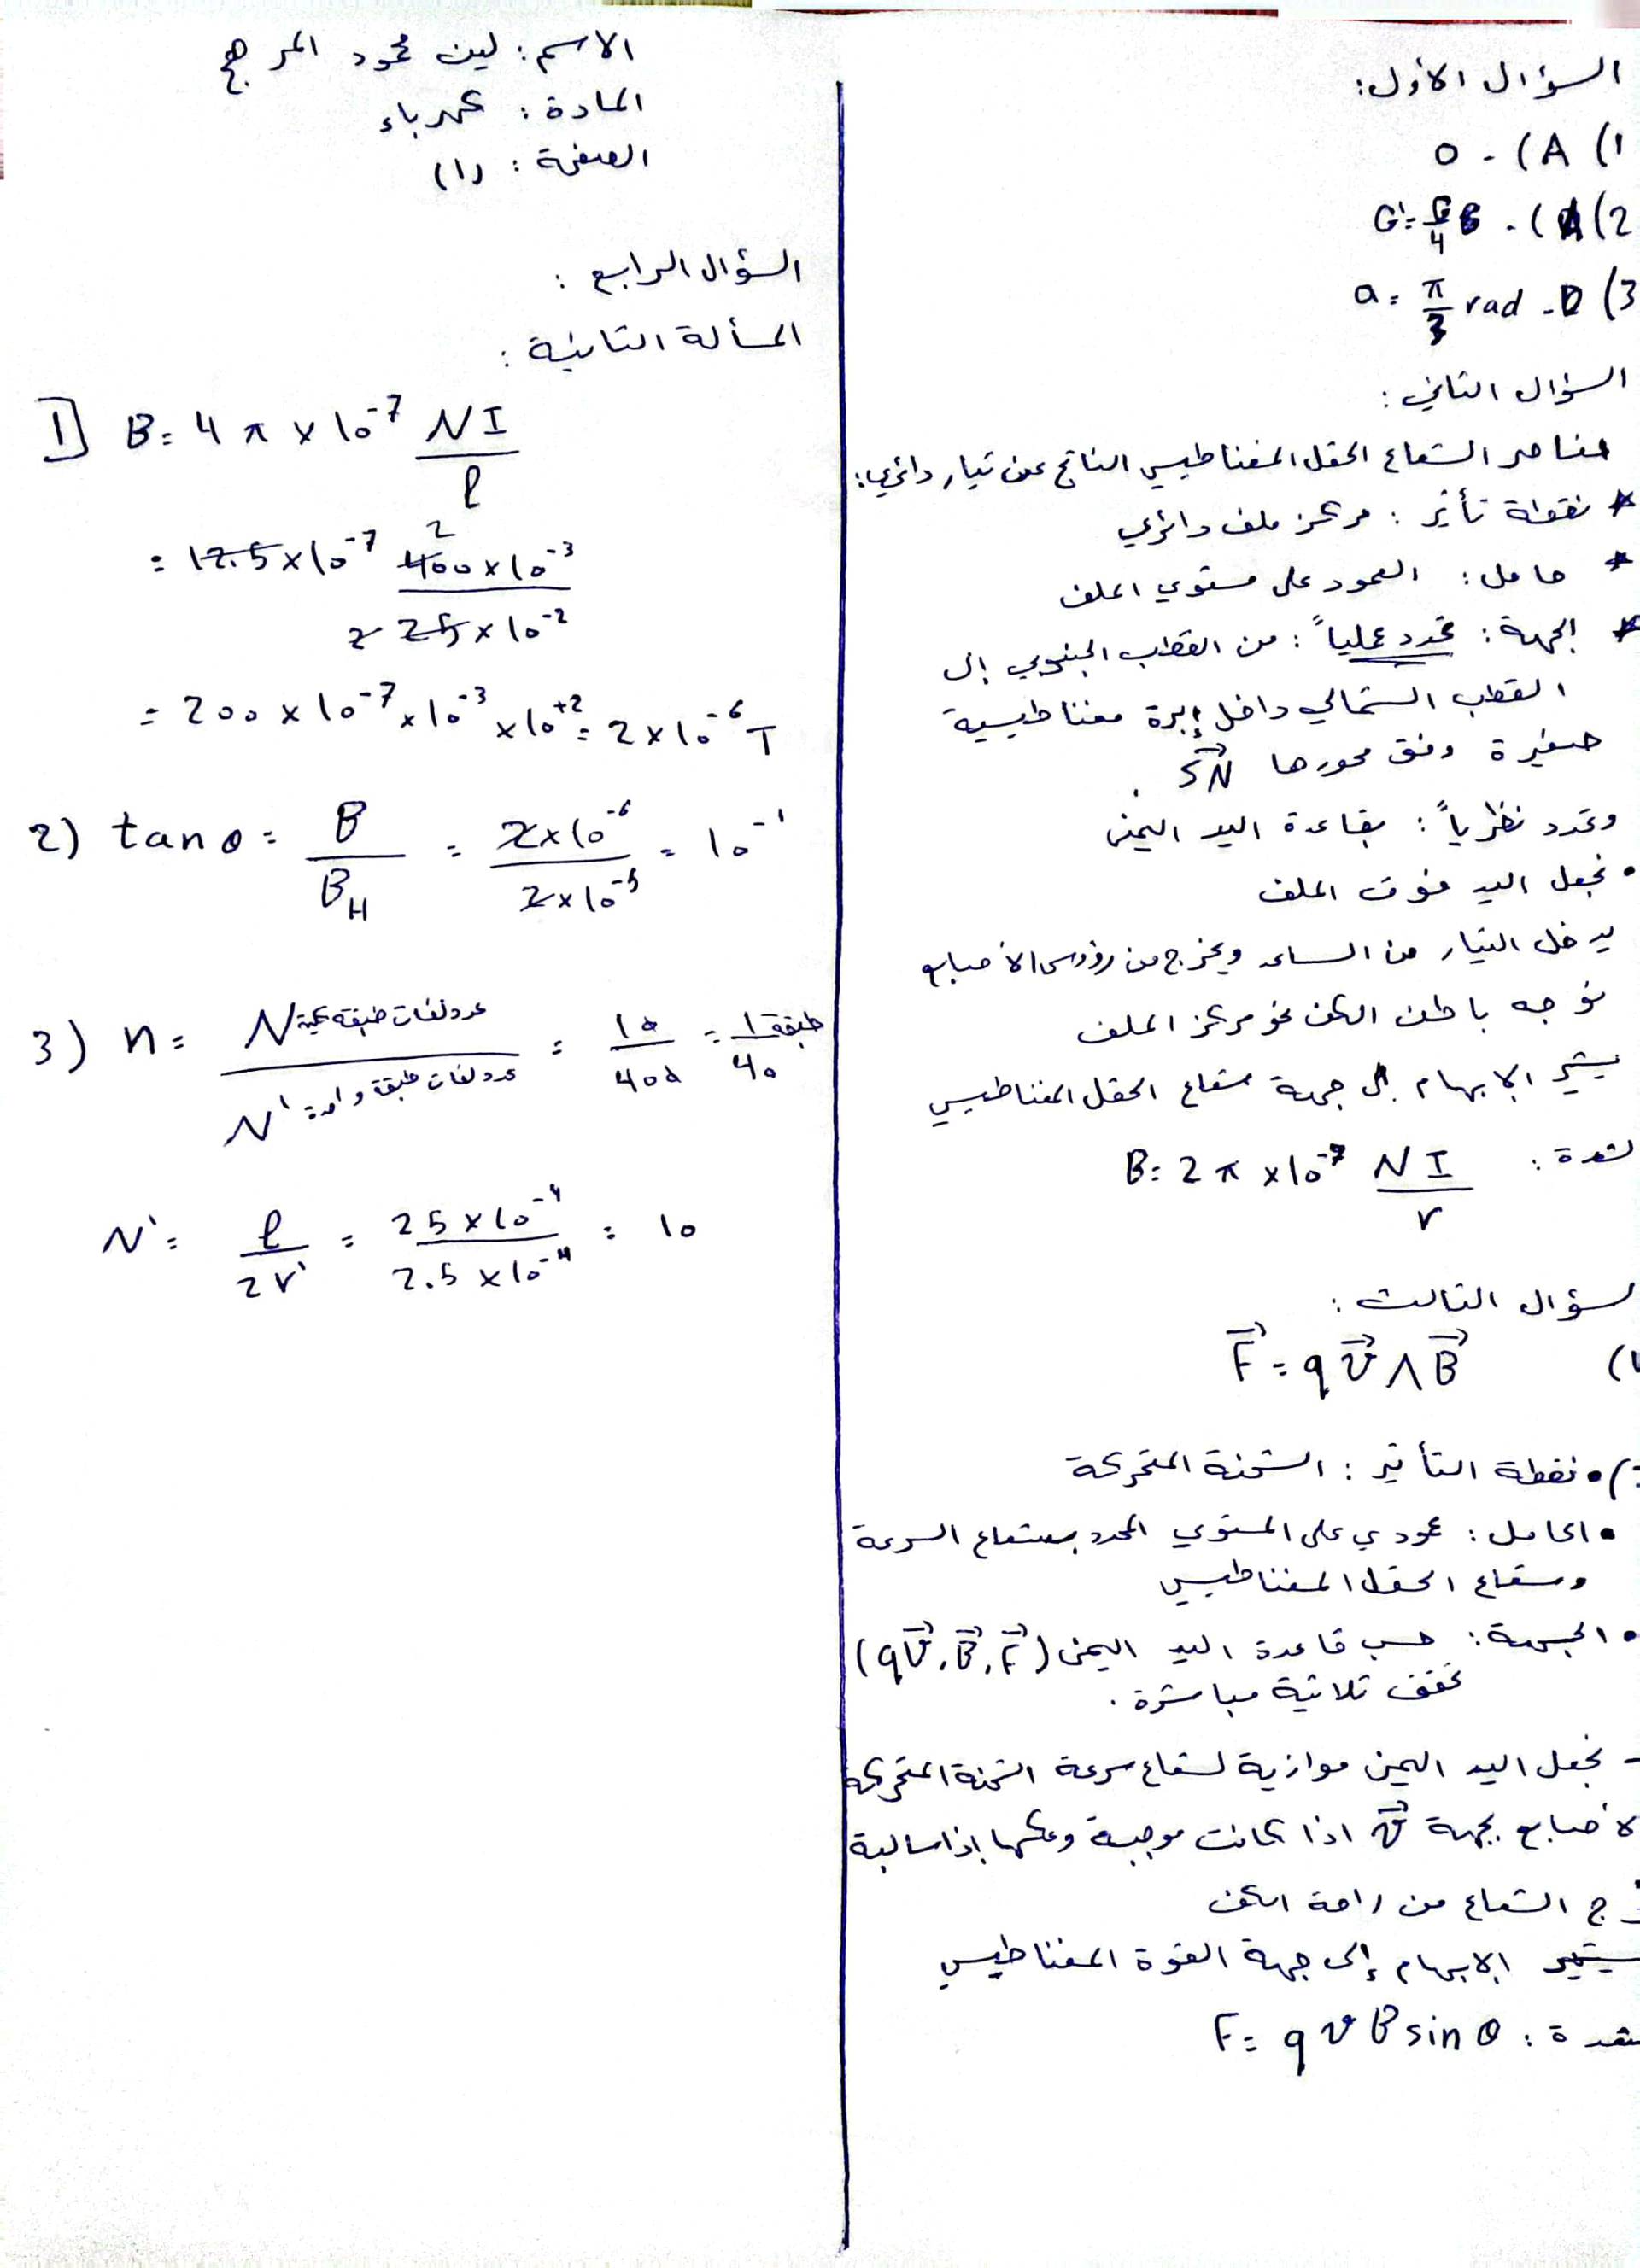 السؤال الأول:
1) A) - 0
2) A) - G' = G/4
3) D - a = π/3 rad
السؤال الثاني:
عناصر الشعاع الحقل المغناطيسي الناتج عن تيار دائري:
* نقطة تأثير: مركز ملف دائري
* حامل: العمود على مستوي الملف
* الجهة: تحدد عملياً: من القطب الجنوبي إلى
القطب الشمالي داخل إبرة مغناطيسية
صغيرة وفق محورها SN.
وتحدد نظرياً: بقاعدة اليد اليمنى
• نجعل اليد فوق الملف
يدخل التيار من الساعد ويخرج من رؤوس الأصابع
نوجه باطن الكف نحو مركز الملف
يشير الإبهام إلى جهة شعاع الحقل المغناطيسي
لشدة: B = 2π × 10^-7 NI/r
لسؤال الثالث:
F = q v ∧ B
• نقطة التأثير: الشحنة المتحركة
• الحامل: عمودي على المستوي المحدد بشعاع السرعة
وشعاع الحقل المغناطيسي
• الجهة: حسب قاعدة اليد اليمنى (qv, B, F)
تحقق ثلاثية مباشرة.
- نجعل اليد اليمنى موازية لشعاع سرعة الشحنة المتحركة
لأصابع بجهة v اذا كانت موجبة وعكسها إذا سالبة
ج الشعاع من راحة الكف
يشير الإبهام إلى جهة القوة المغناطيسي
شدة: F = q v B sin θ
الاسم: لين محمود المرجع
المادة: كهرباء
الصفحة: (1)
السؤال الرابع:
المسألة الثانية:
1] B = 4π × 10^-7 NI/l
= 12.5 × 10^-7 400 × 10^-3 / 25 × 10^-2
= 200 × 10^-7 × 10^-3 × 10^+2 = 2 × 10^-6 T
2) tan θ = B/B_H = 2 × 10^-6 / 2 × 10^-5 = 10^-1
3) n = N عدد لفات طبقة كلية / N' عدد لفات طبقة واحدة = 10/400 = 1/40 طبقة
N' = l/2r' = 25 × 10^-4 / 2.5 × 10^-4 = 10